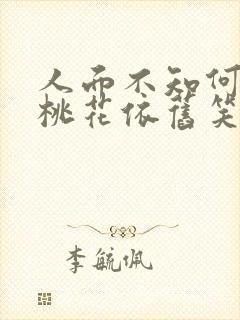 人而不知何
桃花依舊笑
李毓佩